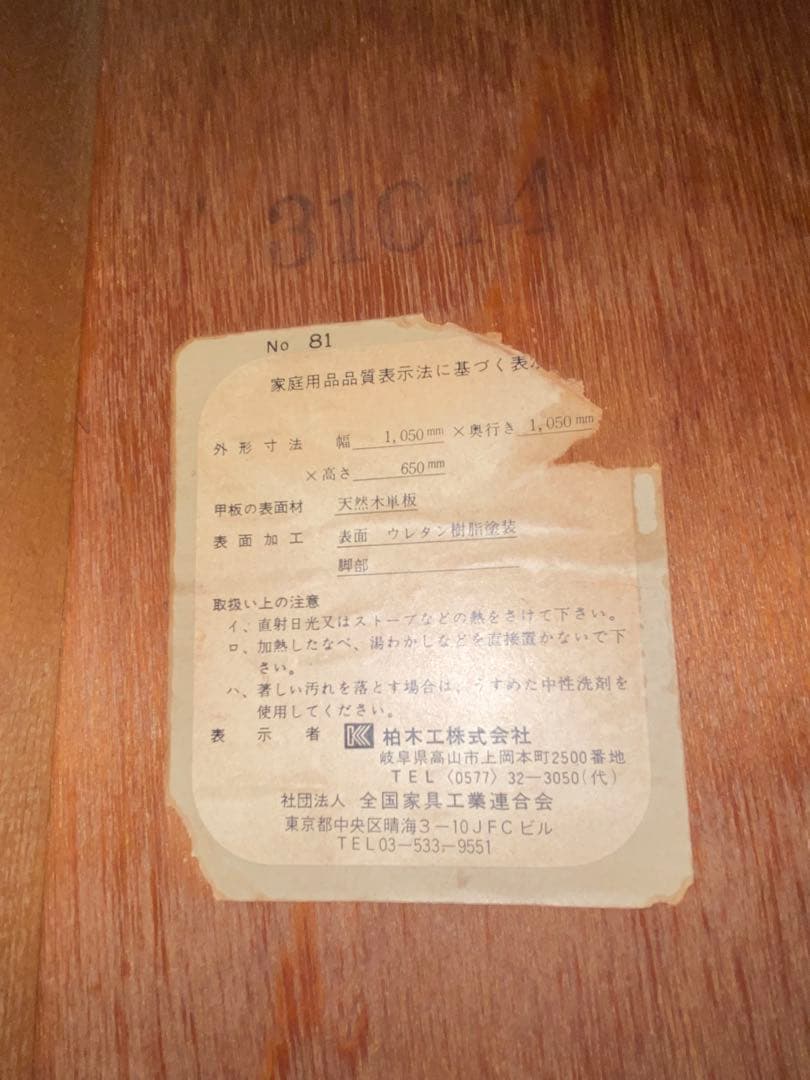 31C14
No 81
家庭用品品質表示法に基づく表
外形寸法 幅 1,050mm ×奥行き 1,050mm
×高さ 650mm
甲板の表面材 天然木単板
表面加工 表面 ウレタン樹脂塗装
脚部
取扱い上の注意
イ、直射日光又はストーブなどの熱をさけて下さい。
ロ、加熱したなべ、湯わかしなどを直接置かないで下
さい。
ハ、著しい汚れを落とす場合は、うすめた中性洗剤を
使用してください。
表示者 柏木工株式会社
岐阜県高山市上岡本町2500番地
TEL〈0577〉32-3050(代)
社団法人 全国家具工業連合会
東京都中央区晴海3-10JFCビル
TEL03-533-9551